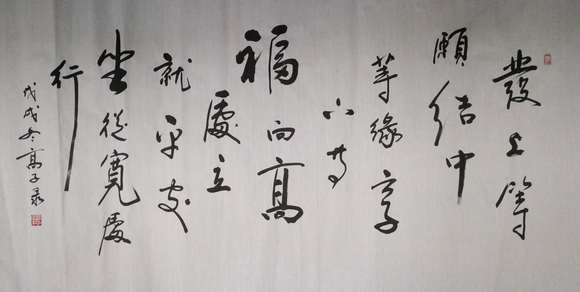 發上等
願结中
等緣享
下等
福向高
處立
就平处
坐從寬處
行
戊戌冬高子录